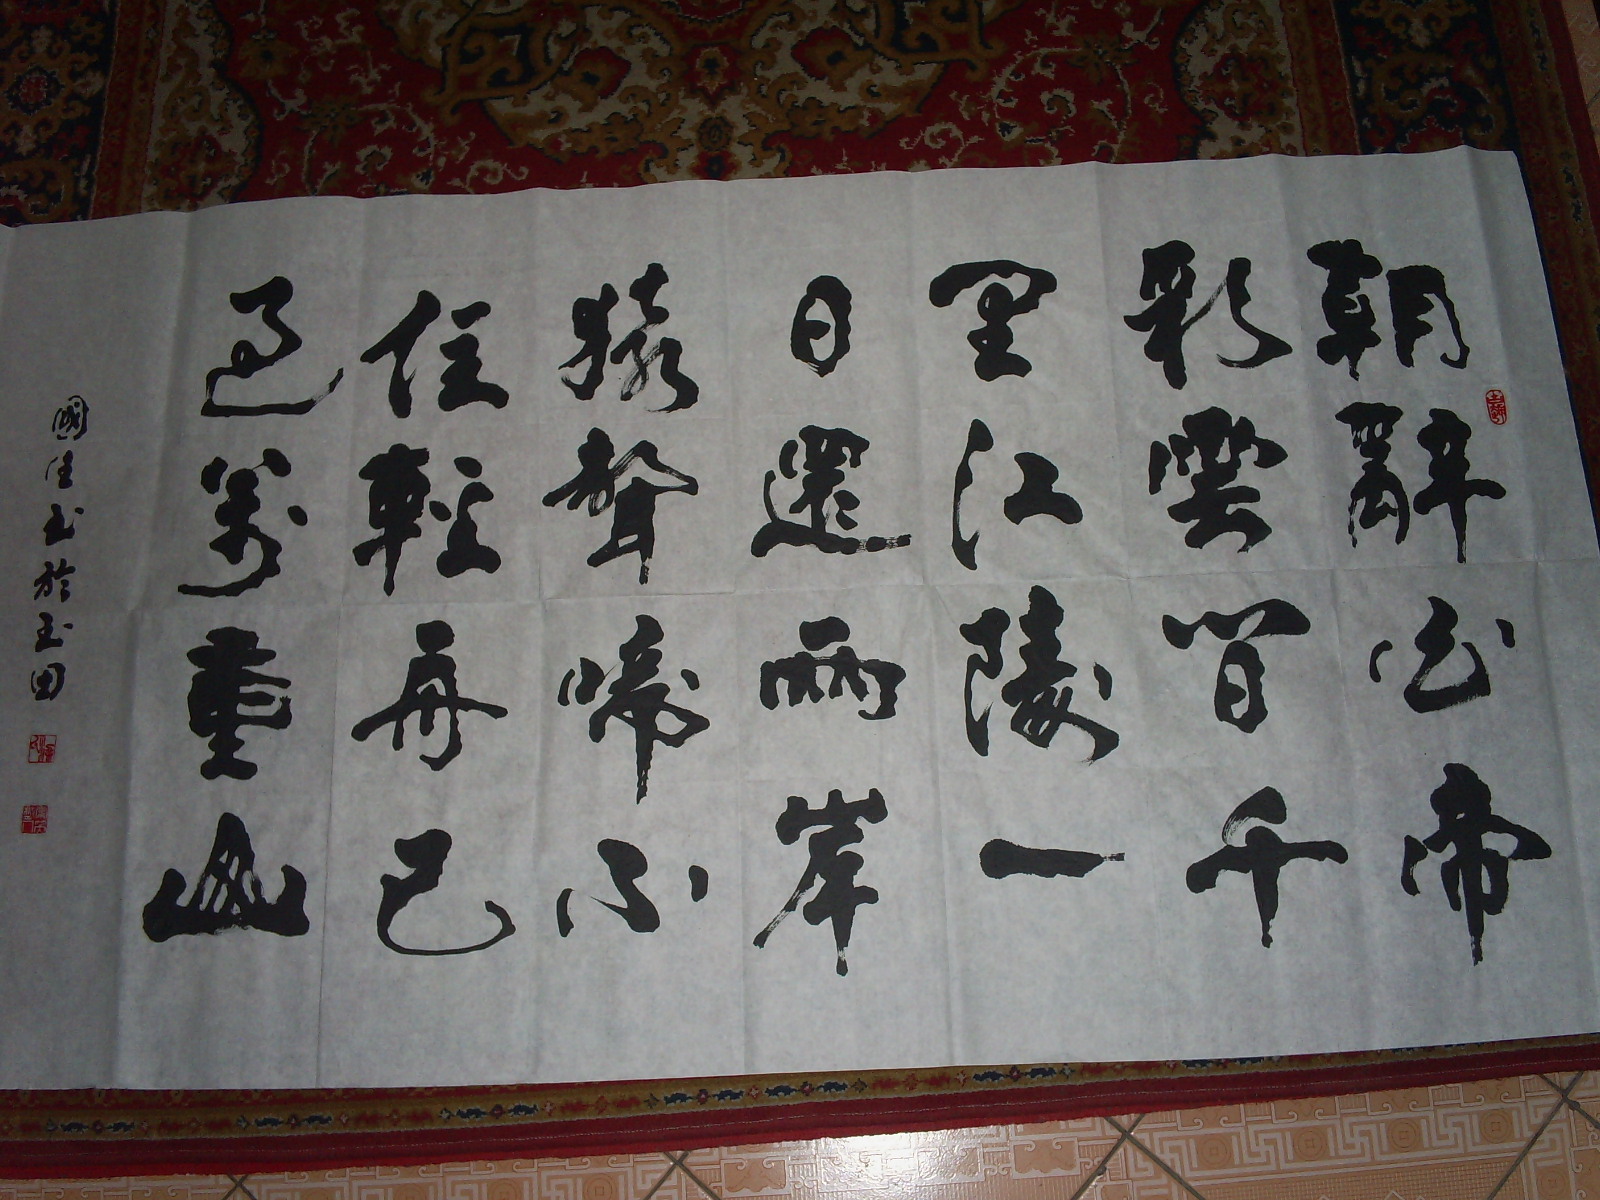 朝辭白帝
彩雲間千
里江陵一
日還兩岸
猿聲啼不
住輕舟已
過萬重山
國佳书於玉田